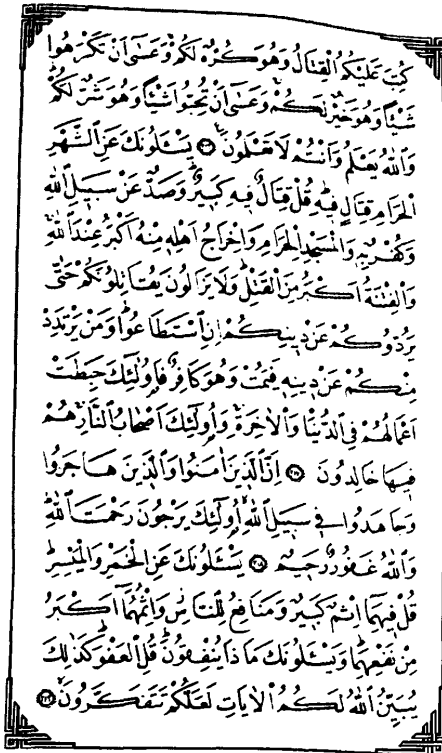 كُتِبَ عَلَيْكُمُ الْقِتَالُ وَهُوَ كُرْهٌ لَكُمْ وَعَسٰٓى اَنْ تَكْرَهُوا
شَيْـًٔا وَهُوَ خَيْرٌ لَكُمْ وَعَسٰٓى اَنْ تُحِبُّوا شَيْـًٔا وَهُوَ شَرٌّ لَكُمْ
وَاللّٰهُ يَعْلَمُ وَاَنْتُمْ لَا تَعْلَمُونَ ﴿٢١٦﴾ يَسْـَٔلُونَكَ عَنِ الشَّهْرِ
الْحَرَامِ قِتَالٍ فِيهِ قُلْ قِتَالٌ فِيهِ كَبِيرٌ وَصَدٌّ عَنْ سَبِيلِ اللّٰهِ
وَكُفْرٌ بِهٖ وَالْمَسْجِدِ الْحَرَامِ وَاِخْرَاجُ اَهْلِهٖ مِنْهُ اَكْبَرُ عِنْدَ اللّٰهِ
وَالْفِتْنَةُ اَكْبَرُ مِنَ الْقَتْلِ وَلَا يَزَالُونَ يُقَاتِلُونَكُمْ حَتّٰى
يَرُدُّوكُمْ عَنْ دِينِكُمْ اِنِ اسْتَطَاعُوا وَمَنْ يَرْتَدِدْ
مِنْكُمْ عَنْ دِينِهٖ فَيَمُتْ وَهُوَ كَافِرٌ فَاُولٰٓئِكَ حَبِطَتْ
اَعْمَالُهُمْ فِي الدُّنْيَا وَالْاٰخِرَةِ وَاُولٰٓئِكَ اَصْحَابُ النَّارِ هُمْ
فِيهَا خَالِدُونَ ﴿٢١٧﴾ اِنَّ الَّذِينَ اٰمَنُوا وَالَّذِينَ هَاجَرُوا
وَجَاهَدُوا فِي سَبِيلِ اللّٰهِ اُولٰٓئِكَ يَرْجُونَ رَحْمَتَ اللّٰهِ
وَاللّٰهُ غَفُورٌ رَحِيمٌ ﴿٢١٨﴾ يَسْـَٔلُونَكَ عَنِ الْخَمْرِ وَالْمَيْسِرِ
قُلْ فِيهِمَٓا اِثْمٌ كَبِيرٌ وَمَنَافِعُ لِلنَّاسِ وَاِثْمُهُمَٓا اَكْبَرُ
مِنْ نَفْعِهِمَا وَيَسْـَٔلُونَكَ مَاذَا يُنْفِقُونَ قُلِ الْعَفْوَ كَذٰلِكَ
يُبَيِّنُ اللّٰهُ لَكُمُ الْاٰيَاتِ لَعَلَّكُمْ تَتَفَكَّرُونَ ﴿٢١٩﴾